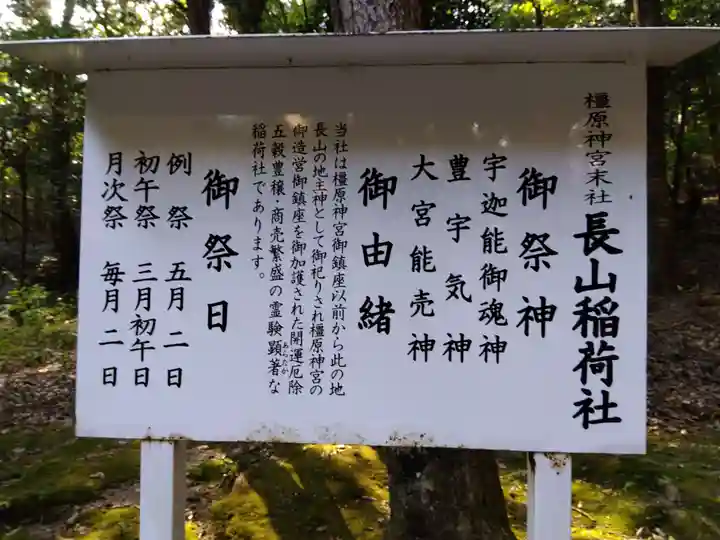 橿原神宮末社
長山稲荷社
御祭神
宇迦能御魂神
豊宇気神
大宮能売神
御由緒
当社は橿原神宮御鎮座以前から此の地
長山の地主神として御祀りされ橿原神宮の
御造営御鎮座を御加護された開運厄除
五穀豊穣・商売繁盛の霊験顕著な
あらたか
稲荷社であります。
御祭日
例祭 五月二日
初午祭 三月初午日
月次祭 毎月二日